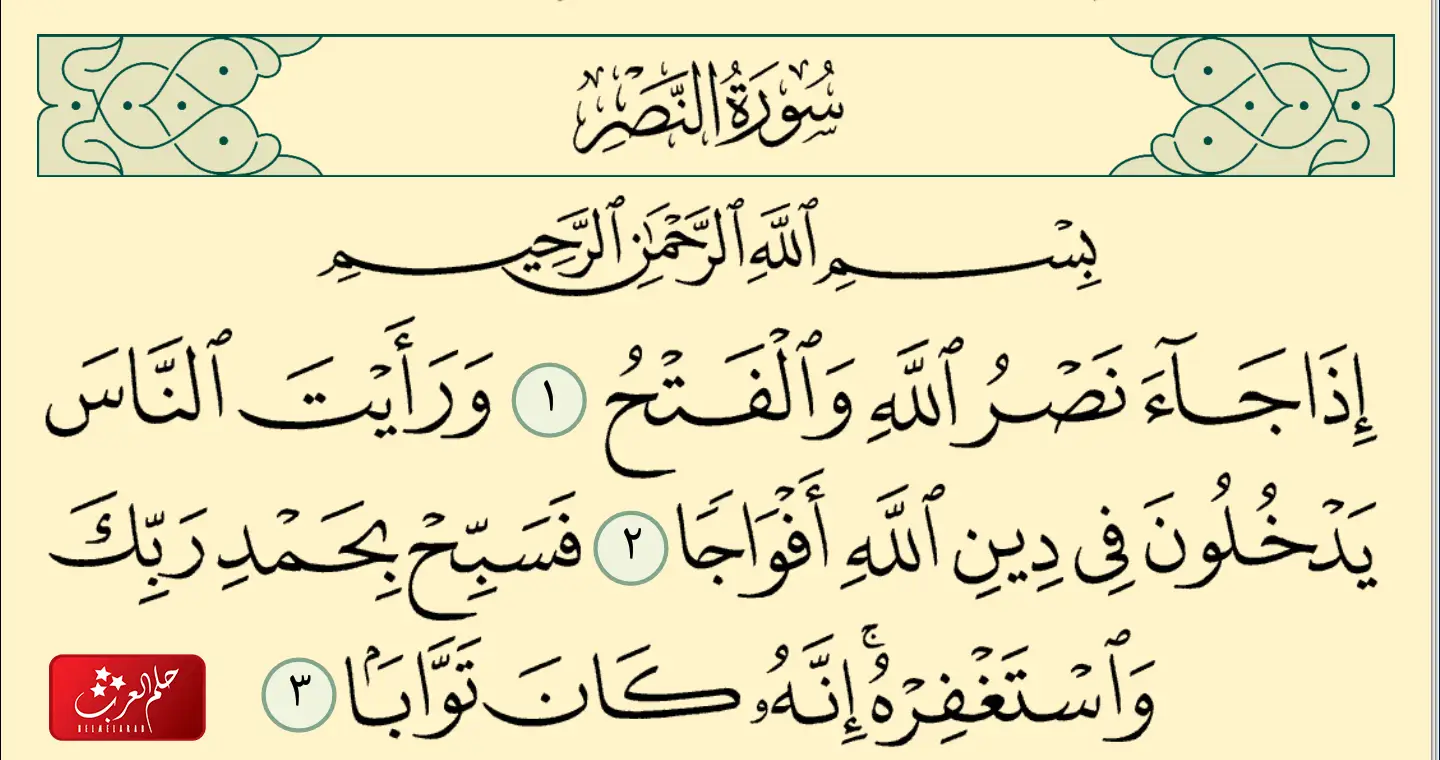 سُورَةُ النَّصْرِ
بِسْمِ ٱللَّهِ ٱلرَّحْمَٰنِ ٱلرَّحِيمِ
إِذَا جَآءَ نَصْرُ ٱللَّهِ وَٱلْفَتْحُ ١ وَرَأَيْتَ ٱلنَّاسَ
يَدْخُلُونَ فِى دِينِ ٱللَّهِ أَفْوَاجًا ٢ فَسَبِّحْ بِحَمْدِ رَبِّكَ
وَٱسْتَغْفِرْهُ ۚ إِنَّهُۥ كَانَ تَوَّابَۢا ٣
حلم العرب
HELMELARAB